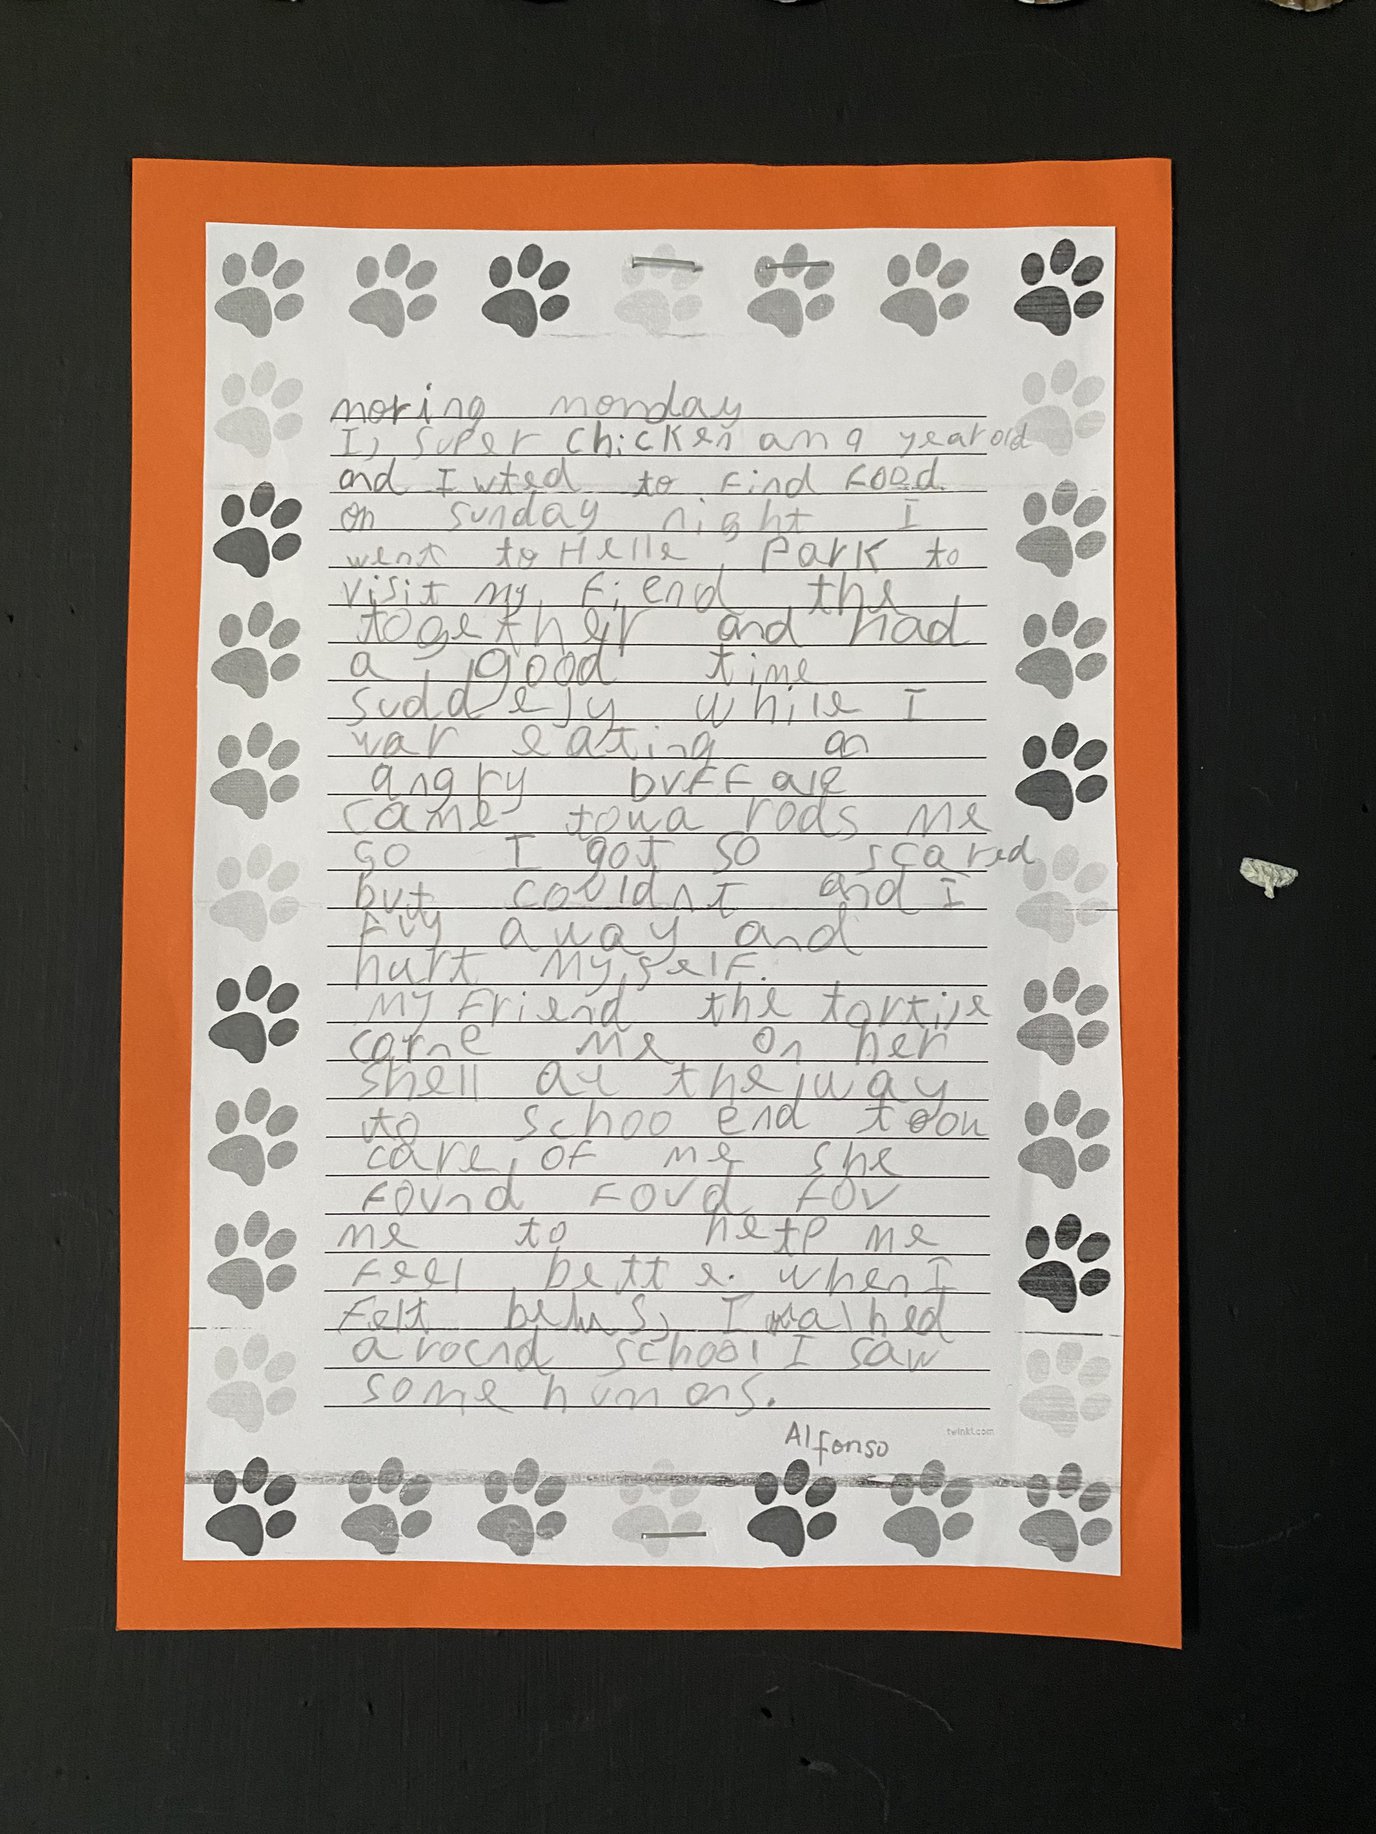 moring monday
I, super chicken am 9 year old
and I wted to find food
on sunday night I
went to Helle Park to
visit my fiend the
together and had
a good time
suddely while I
war eating an
angry buffale
came towa rods me
so I got so scared
but couldnt and I
fly away and
hurt my self.
My friend the tortise
carne me on her
shell at the way
to schoo end toou
care of me she
found foud fov
me to hetp me
feel bette. when I
felt I walhed
arocnd school I saw
some humans.
Alfonso
twinkl.com